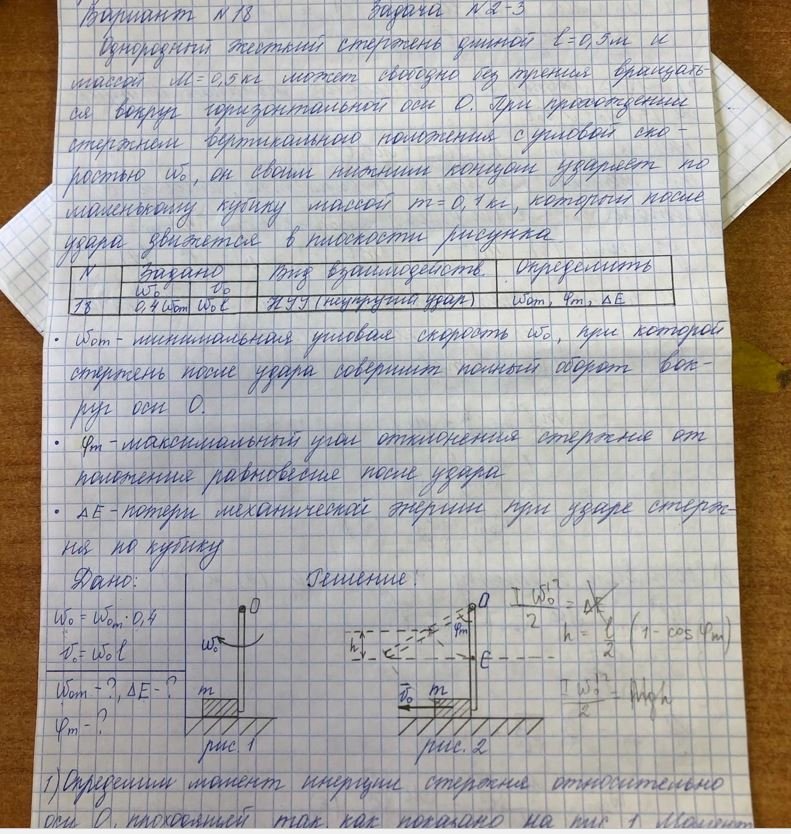 Вариант N 18 Задача N 2-3
Однородный жесткий стержень длиной l=0,5м и
массой M=0,5кг может свободно без трения вращать-
ся вокруг горизонтальной оси O. При прохождении
стержнем вертикального положения с угловой ско-
ростью ω₀, он своим нижним концом ударяет по
маленькому кубику массой m=0,1кг, который после
удара движется в плоскости рисунка
N Задано Вид взаимодейств. Определить
ω₀ υ₀
18 0,4ω₀m ω₀l НУУ (неупругий удар) ω₀m, φm, ΔE
• ω₀m - минимальная угловая скорость ω₀, при которой
стержень после удара совершит полный оборот вок-
руг оси O.
• φm - максимальный угол отклонения стержня от
положения равновесия после удара
• ΔE - потери механической энергии при ударе стерж-
ня по кубику
Дано: Решение:
ω₀ = ω₀m·0,4
υ₀ = ω₀l
ω₀m - ?, ΔE - ?
φm - ?
O
ω₀
m
рис. 1
O
φm
h
C
υ₀
m
рис. 2
I ω₀'²/2 = ΔE
h = l/2 (1 - cos φm)
I ω₀'²/2 = Mgh
1) Определим момент инерции стержня относительно
оси O, проходящей так, как показано на рис 1. Момент